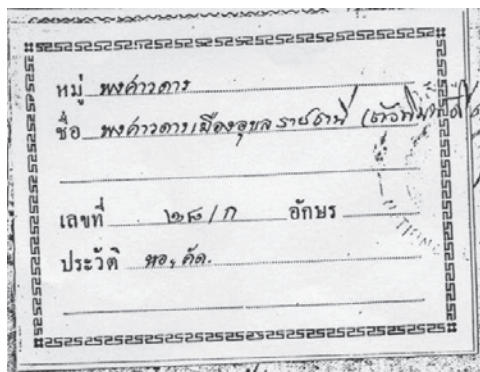 หมู่ พงศาวดาร
ชื่อ พงศาวดารเมืองอุบลราชธานี
เลขที่ ๒๘/ก อักษร
ประวัติ หอ, คัด.